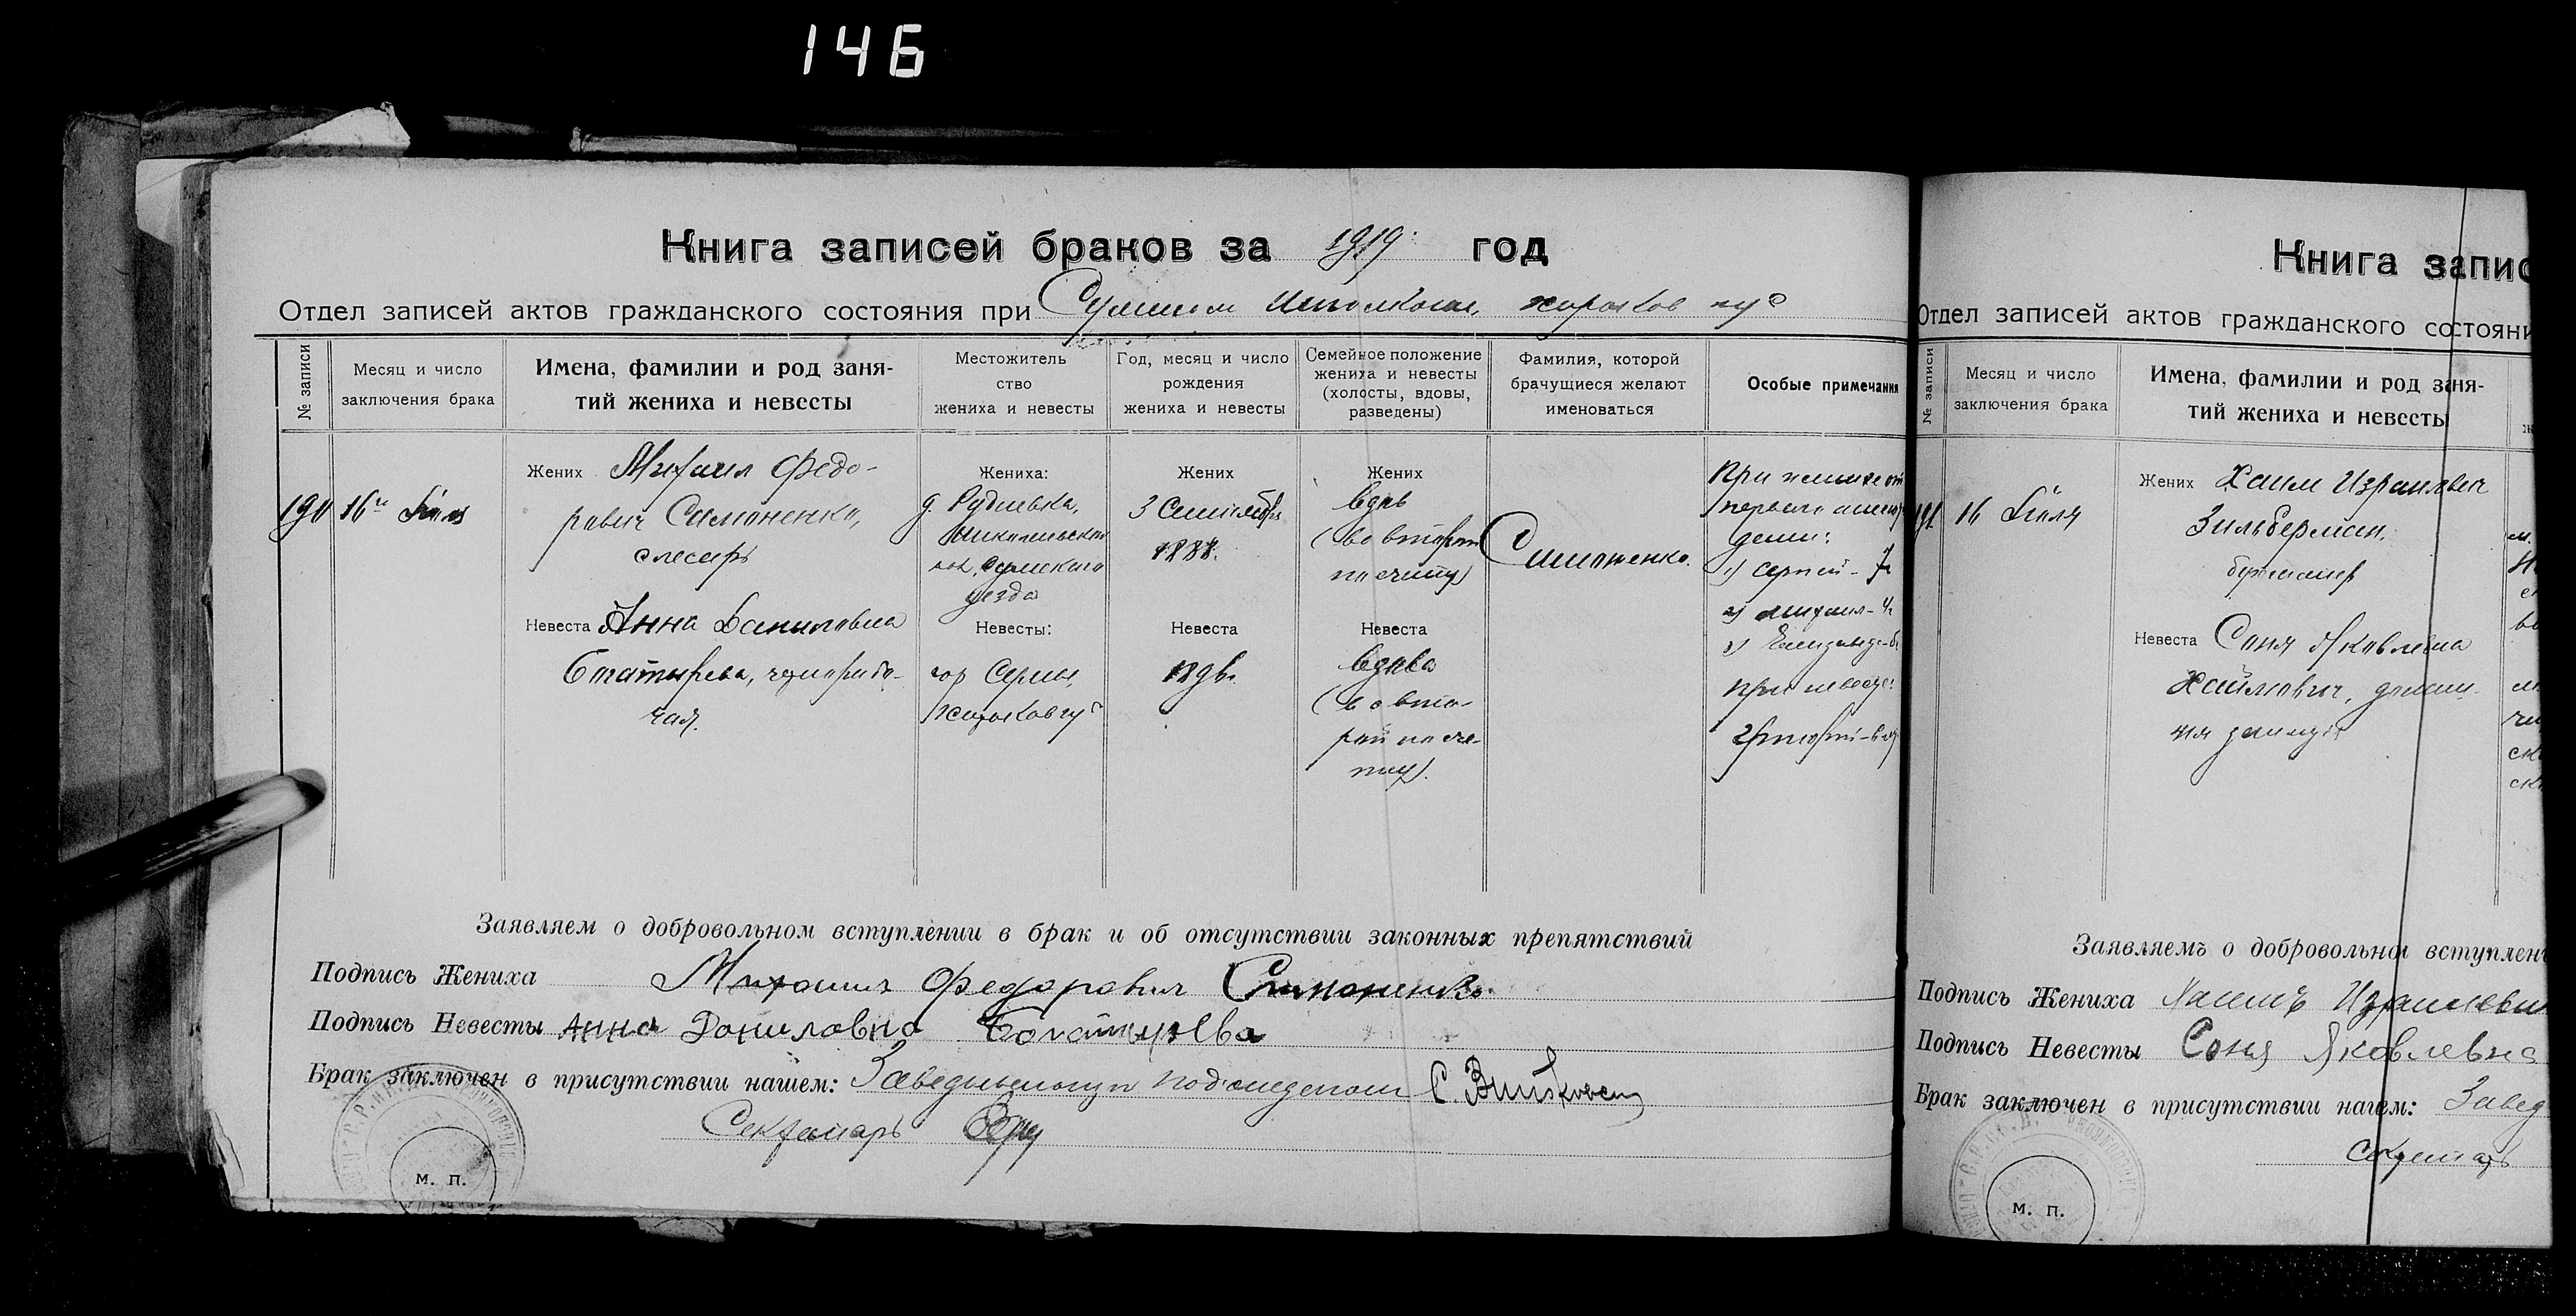 146
Книга записей браков за 1919 год
Отдел записей актов гражданского состояния при Сумском Исполкоме, харьков губ
№ записи
Месяц и число
заключения брака
Имена, фамилии и род заня-
тий жениха и невесты
Местожитель
ство
жениха и невесты
Год, месяц и число
рождения
жениха и невесты
Семейное положение
жениха и невесты
(холосты, вдовы,
разведены)
Фамилия, которой
брачущиеся желают
именоваться
Особые примечания
190
16го Июля
Жених Михаил Федо-
рович Симоненко,
слесарь
Невеста Анна Даниловна
Богатырева, чернорабо-
чая.
Жениха:
д. Рудневка,
Сумского
уезда
Невесты:
гор Сумы,
Харьков гу
Жених
3 Сентября
1888.
Невеста
189
Жених
вдов
(во втором
по счету)
Невеста
вдова
(во вто-
рой по сче-
ту).
Симоненко.
При женихе от
первого
дети:
1) Сергей - 7
2) Михаил - 4
3)
при невесте:
Заявляем о добровольном вступлении в брак и об отсутствии законных препятствий
Подпись Жениха Михаил Федорович Симоненко
Подпись Невесты Анна Даниловна Богатырева
Брак заключен в присутствии нашем: Заведывающий подотделом С.
Секретарь
м. п.
Книга запис
Отдел записей актов гражданского состояни
№ записи
Месяц и число
заключения брака
Имена, фамилии и род заня-
тий жениха и невесты
191
16 Июля
Жених Хаим Израилевич
Зильберман,
Невеста Соня Яковлевна
Хаймович,
Заявляемъ о добровольном вступлен
Подпись Жениха Хаимъ Израилеви
Подпись Невесты Соня Яковлевна
Брак заключен в присутствии нашем: Завед
Секретарь
м. п.